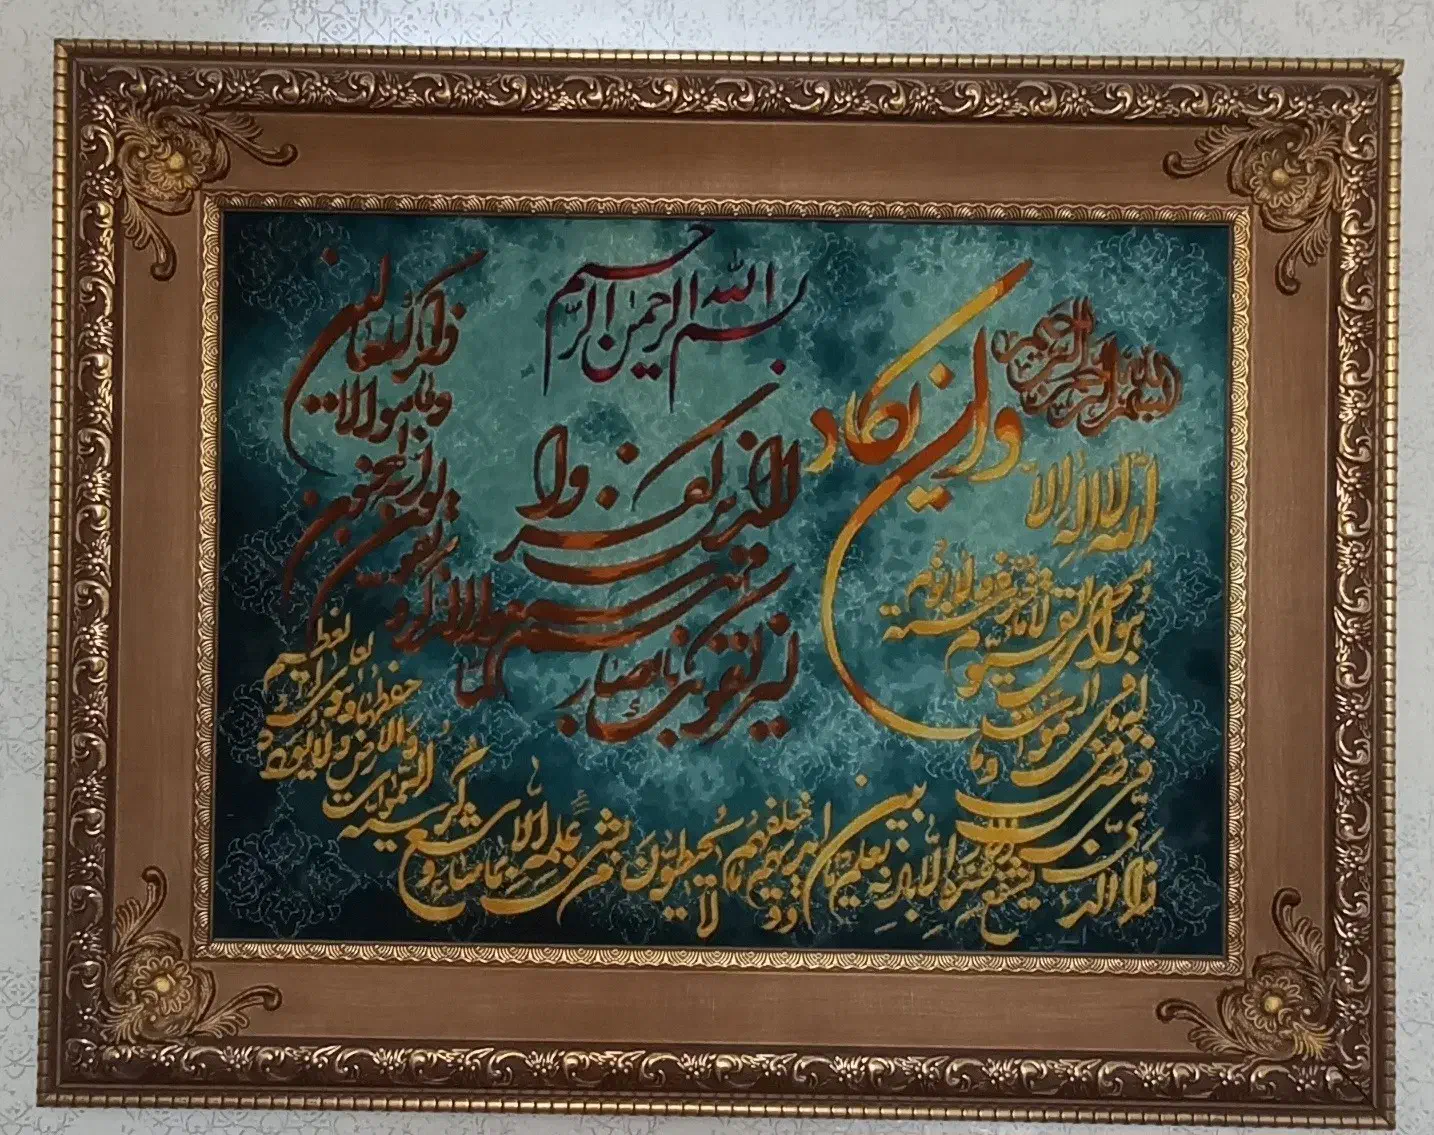 بسم الله الرحمن الرحیم
وان یکاد
الذین کفروا
لیزلقونک بابصارهم
لما سمعوا الذکر و
یقولون انه لمجنون
وما هو الا
ذکر للعالمین
بسم الله الرحمن الرحیم
اللّٰه لا اله الا
هو الحی القیوم لا تاخذه سنة ولا نوم
له ما فی السموات وما
فی الارض من
ذا الذی یشفع عنده الا باذنه یعلم ما بین ایدیهم وما خلفهم ولا یحیطون بشیء من علمه الا بما شاء وسع کرسیه
السموات والارض ولا یوده
حفظهما وهو العلی العظیم